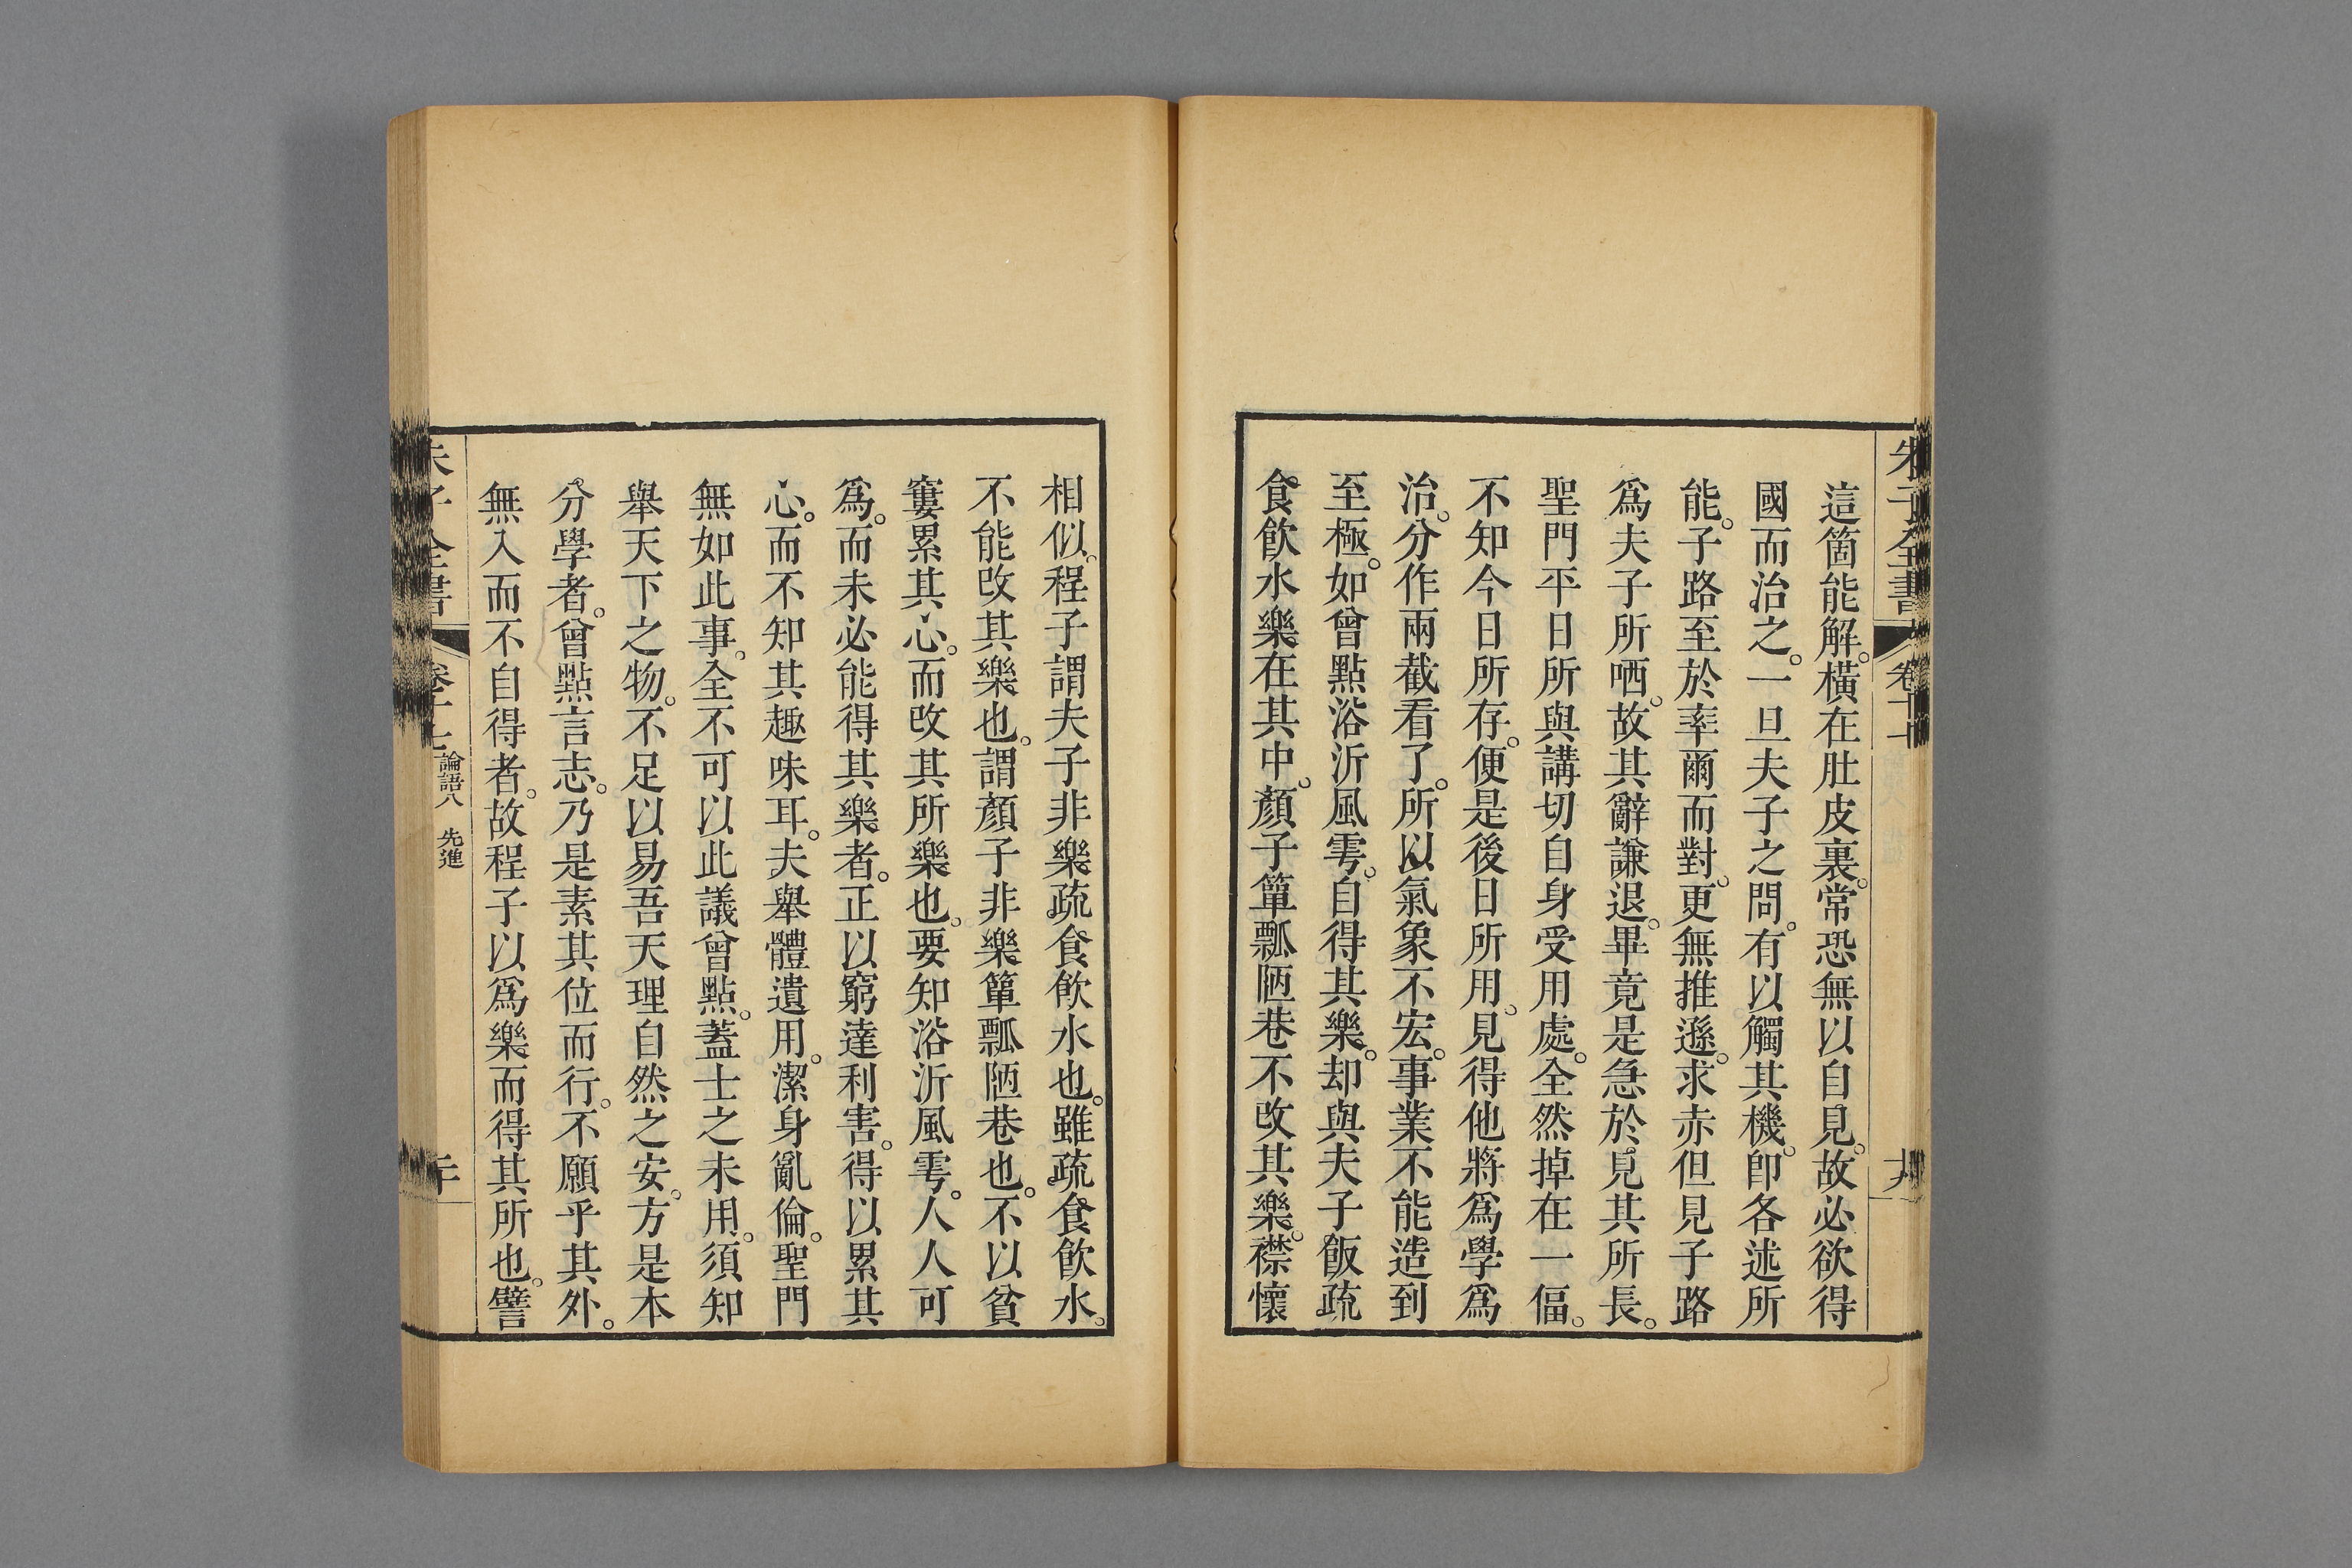 這箇能解。橫在肚皮裏。常恐無以自見。故必欲得
國而治之。一旦夫子之問。有以觸其機。卽各述所
能。子路至於率爾而對。更無推遜。求赤但見子路
爲夫子所哂。故其辭謙退。畢竟是急於見其所長。
聖門平日所與講切自身受用處。全然掉在一偪。
不知今日所存。便是後日所用。見得他將爲學爲
治。分作兩截看了。所以氣象不宏。事業不能造到
至極。如曾點浴沂風雩。自得其樂。却與夫子飯疏
食飮水樂在其中。顏子簞瓢陋巷不改其樂。襟懷
相似。程子謂夫子非樂疏食飮水也。雖疏食飮水。
不能改其樂也。謂顏子非樂簞瓢陋巷也。不以貧
窶累其心。而改其所樂也。要知浴沂風雩。人人可
爲。而未必能得其樂者。正以窮達利害。得以累其
心。而不知其趣味耳。夫舉體遺用。潔身亂倫。聖門
無如此事。全不可以此議曾點。蓋士之未用。須知
舉天下之物。不足以易吾天理自然之安。方是本
分學者。曾點言志。乃是素其位而行。不願乎其外。
無入而不自得者。故程子以爲樂而得其所也。譬
朱子全書
卷十七
論語八 先進